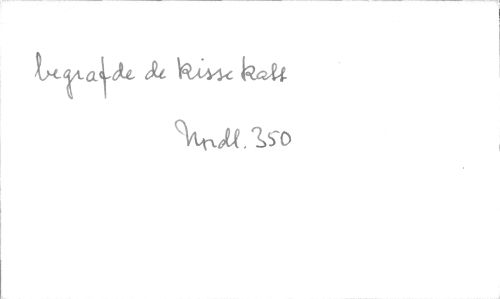 begrafde de kisse katt
Nrdl. 350